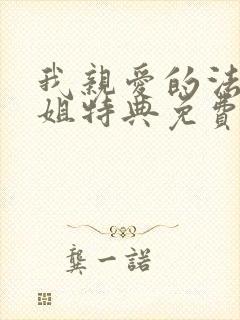 我親愛的法
姐特典免費
龔一諾